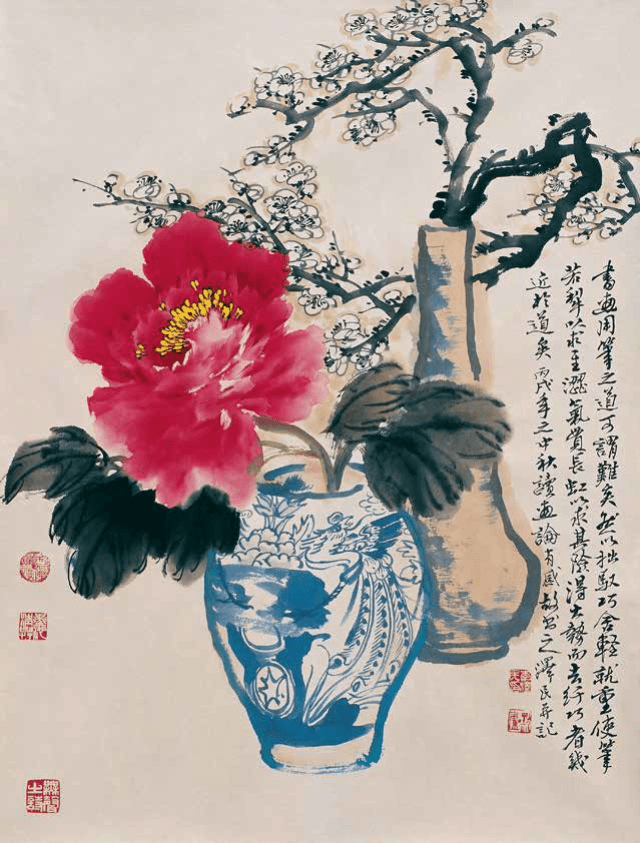 書畫用筆之道可謂難矣然以拙馭巧舍輕就重使筆
若犁以求至澀氣貫長虹以求其險得大勢而去纤巧者幾
近於道矣丙戌年之中秋讀畫論有感故書之澤民并記
無聲之詩